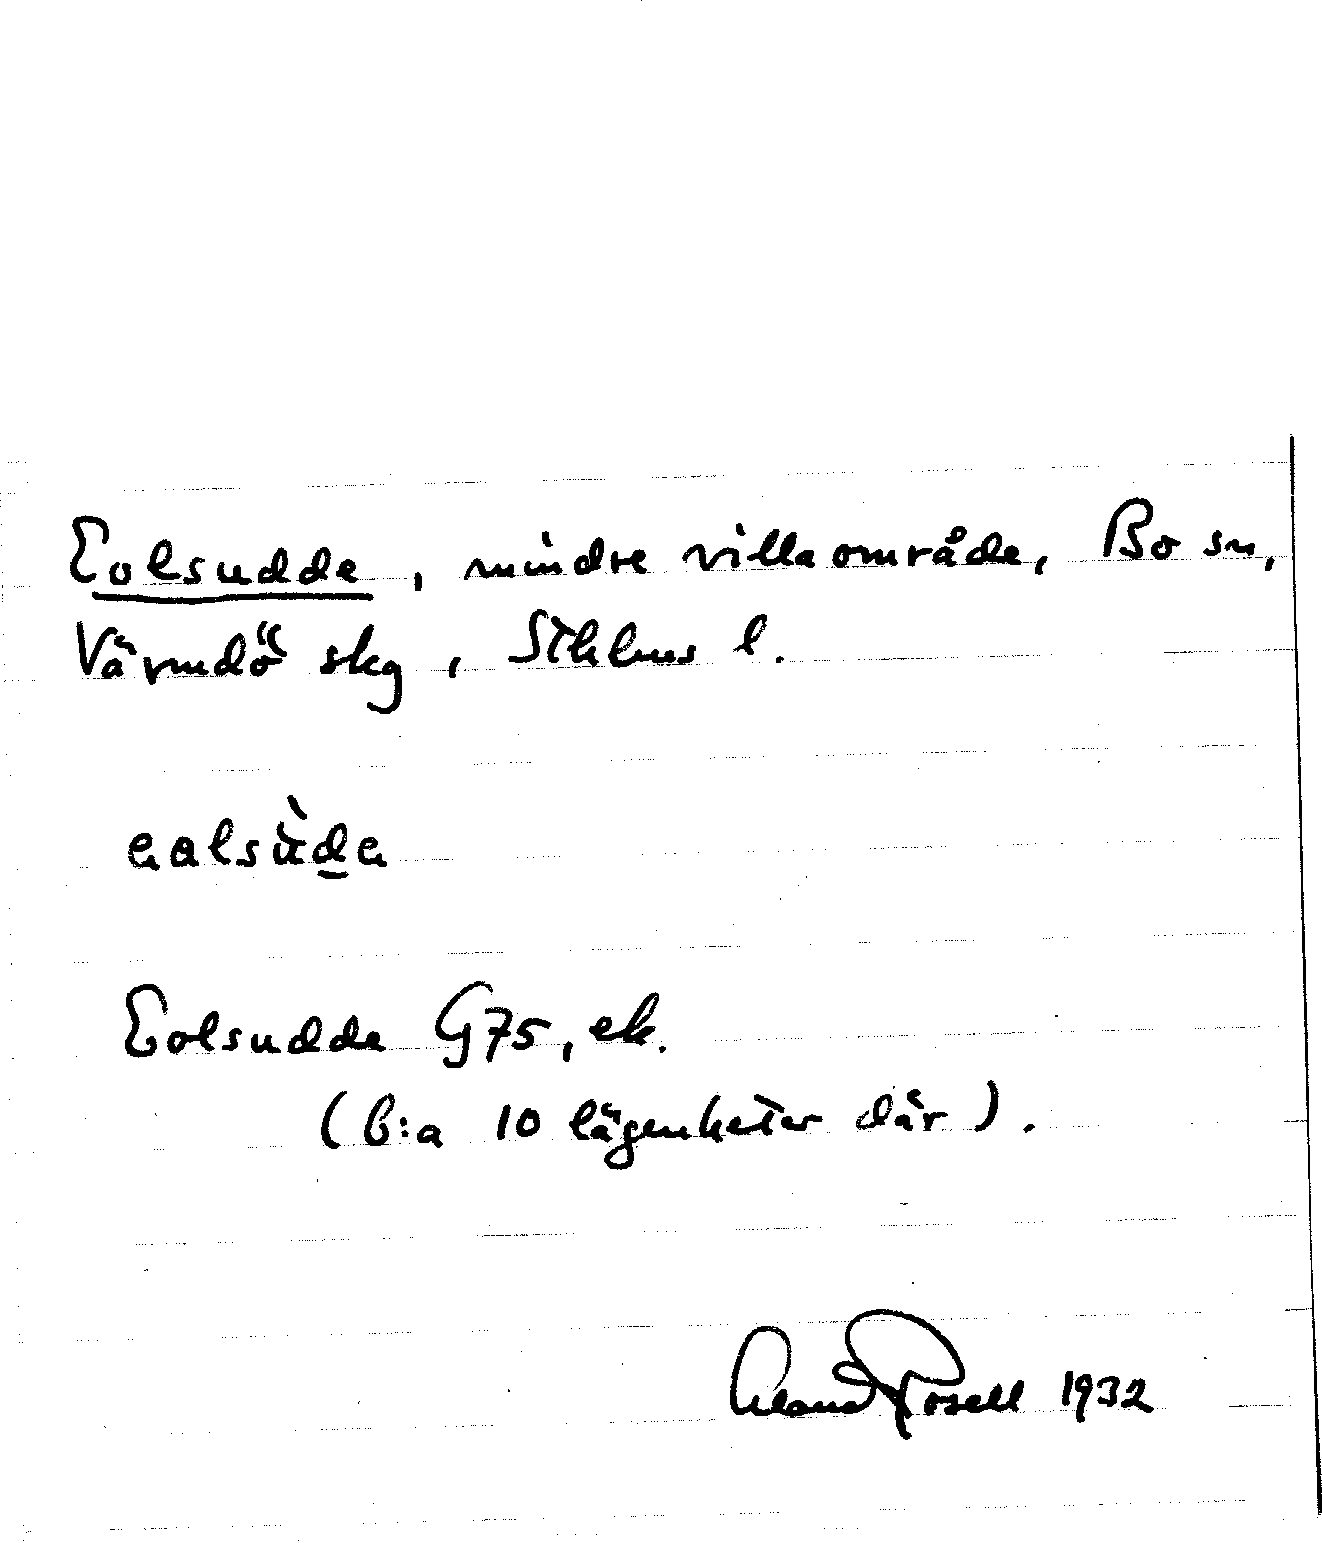 Eolsudde, mindre villaområde, Bo sn,
Värmdö skg, Sthlms l.
Eolsudde G75, ek.
(b:a 10 lägenheter där).
Rosell 1932